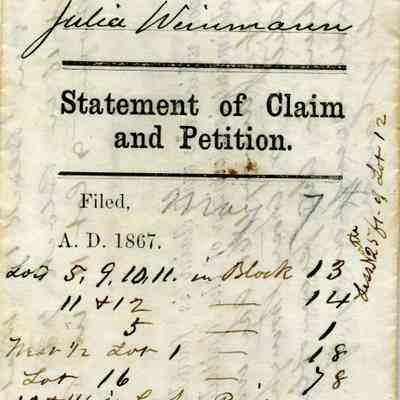 Julia Weinmann
Statement of Claim
and Petition.
Filed, May 7th
A. D. 1867.
Lots 5, 9, 10, 11. in Block 13
11 & 12 — 14
5 — 1
West 1/2 Lot 1 — 18
Lot 16 — 78
Less 25 ft of Lot 12